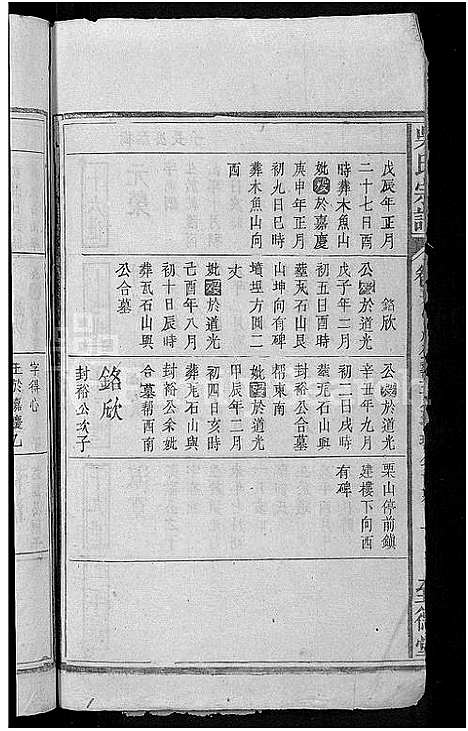 吳氏宗譜
至德堂
戊辰年正月
二十七日酉
時葬木魚山
妣歿於嘉慶
庚申年正月
初九日巳時
葬木魚山向
酉
銘欣
公歿於道光
戊子年二月
初五日酉時
葬瓦石山艮
山坤向有碑
墳堘方圓二
丈
妣歿於道光
己酉年八月
初十日辰時
葬瓦石山與
公合墓
公歿於道光
辛丑年九月
初二日戌時
葬瓦石山與
封裕公合墓
幇東南
妣歿於道光
甲辰年二月
初四日亥時
葬瓦石山與
封裕公余妣
合墓幇西南
銘欣
封裕公次子
字得心
生於嘉慶乙
栗山停前鎮
建樓下向西
有碑